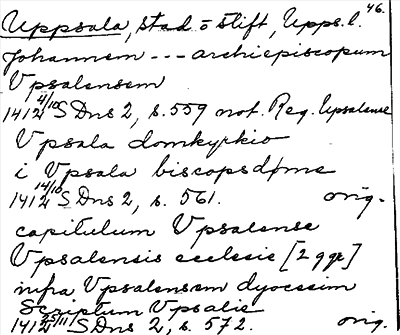 46.
Uppsala, stad o stift, Upps. l.
Johannem --- archiepiscopum
Vpsalensem
1412 4/10 SDns 2, s. 559 not. Reg. Upsalense
Vpsala domkyrkio
i Vpsala biscopsdøme
1412 14/10 SDns 2, s. 561. orig.
capitulum Vpsalense
Vpsalensis ecclesie [2 ggr]
infra Vpsalensem dyocesim
Scriptum Vpsalie
1412 25/11 SDns 2, s. 572. orig.